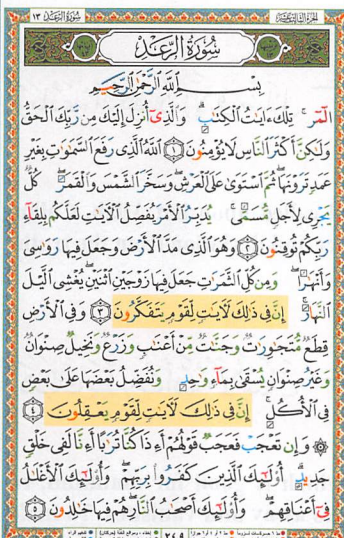 سُورَةُ الرَّعْدِ ١٣
سُورَةُ الرَّعْدِ
بِسْمِ اللَّهِ الرَّحْمَٰنِ الرَّحِيمِ
الٓمٓر ۚ تِلْكَ ءَايَٰتُ الْكِتَٰبِ ۗ وَالَّذِىٓ أُنزِلَ إِلَيْكَ مِن رَّبِّكَ الْحَقُّ
وَلَٰكِنَّ أَكْثَرَ النَّاسِ لَا يُؤْمِنُونَ ١ اللَّهُ الَّذِى رَفَعَ السَّمَٰوَٰتِ بِغَيْرِ
عَمَدٍ تَرَوْنَهَا ۖ ثُمَّ اسْتَوَىٰ عَلَى الْعَرْشِ ۖ وَسَخَّرَ الشَّمْسَ وَالْقَمَرَ ۖ كُلٌّ
يَجْرِى لِأَجَلٍ مُّسَمًّى ۚ يُدَبِّرُ الْأَمْرَ يُفَصِّلُ الْءَايَٰتِ لَعَلَّكُم بِلِقَآءِ
رَبِّكُمْ تُوقِنُونَ ٢ وَهُوَ الَّذِى مَدَّ الْأَرْضَ وَجَعَلَ فِيهَا رَوَٰسِىَ
وَأَنْهَٰرًا ۖ وَمِن كُلِّ الثَّمَرَٰتِ جَعَلَ فِيهَا زَوْجَيْنِ اثْنَيْنِ ۖ يُغْشِى الَّيْلَ
النَّهَارَ ۚ إِنَّ فِى ذَٰلِكَ لَءَايَٰتٍ لِّقَوْمٍ يَتَفَكَّرُونَ ٣ وَفِى الْأَرْضِ
قِطَعٌ مُّتَجَٰوِرَٰتٌ وَجَنَّٰتٌ مِّنْ أَعْنَٰبٍ وَزَرْعٌ وَنَخِيلٌ صِنْوَانٌ
وَغَيْرُ صِنْوَانٍ يُسْقَىٰ بِمَآءٍ وَٰحِدٍ وَنُفَضِّلُ بَعْضَهَا عَلَىٰ بَعْضٍ
فِى الْأُكُلِ ۚ إِنَّ فِى ذَٰلِكَ لَءَايَٰتٍ لِّقَوْمٍ يَعْقِلُونَ ٤
۞ وَإِن تَعْجَبْ فَعَجَبٌ قَوْلُهُمْ أَءِذَا كُنَّا تُرَٰبًا أَءِنَّا لَفِى خَلْقٍ
جَدِيدٍ ۗ أُو۟لَٰٓئِكَ الَّذِينَ كَفَرُوا۟ بِرَبِّهِمْ ۖ وَأُو۟لَٰٓئِكَ الْأَغْلَٰلُ
فِىٓ أَعْنَاقِهِمْ ۖ وَأُو۟لَٰٓئِكَ أَصْحَٰبُ النَّارِ ۖ هُمْ فِيهَا خَٰلِدُونَ ٥
٢٤٩